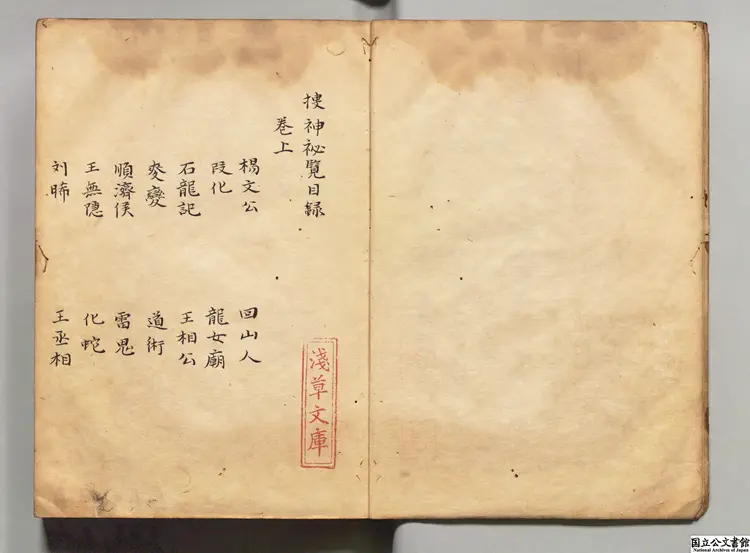 搜神祕覽目録
卷上
楊文公
回山人
段化
龍女廟
石龍記
王相公
變
道術
順濟侯
雷鬼
王無隱
化蛇
刘晞
王丞相
淺草文庫
国立公文書館
National Archives of Japan